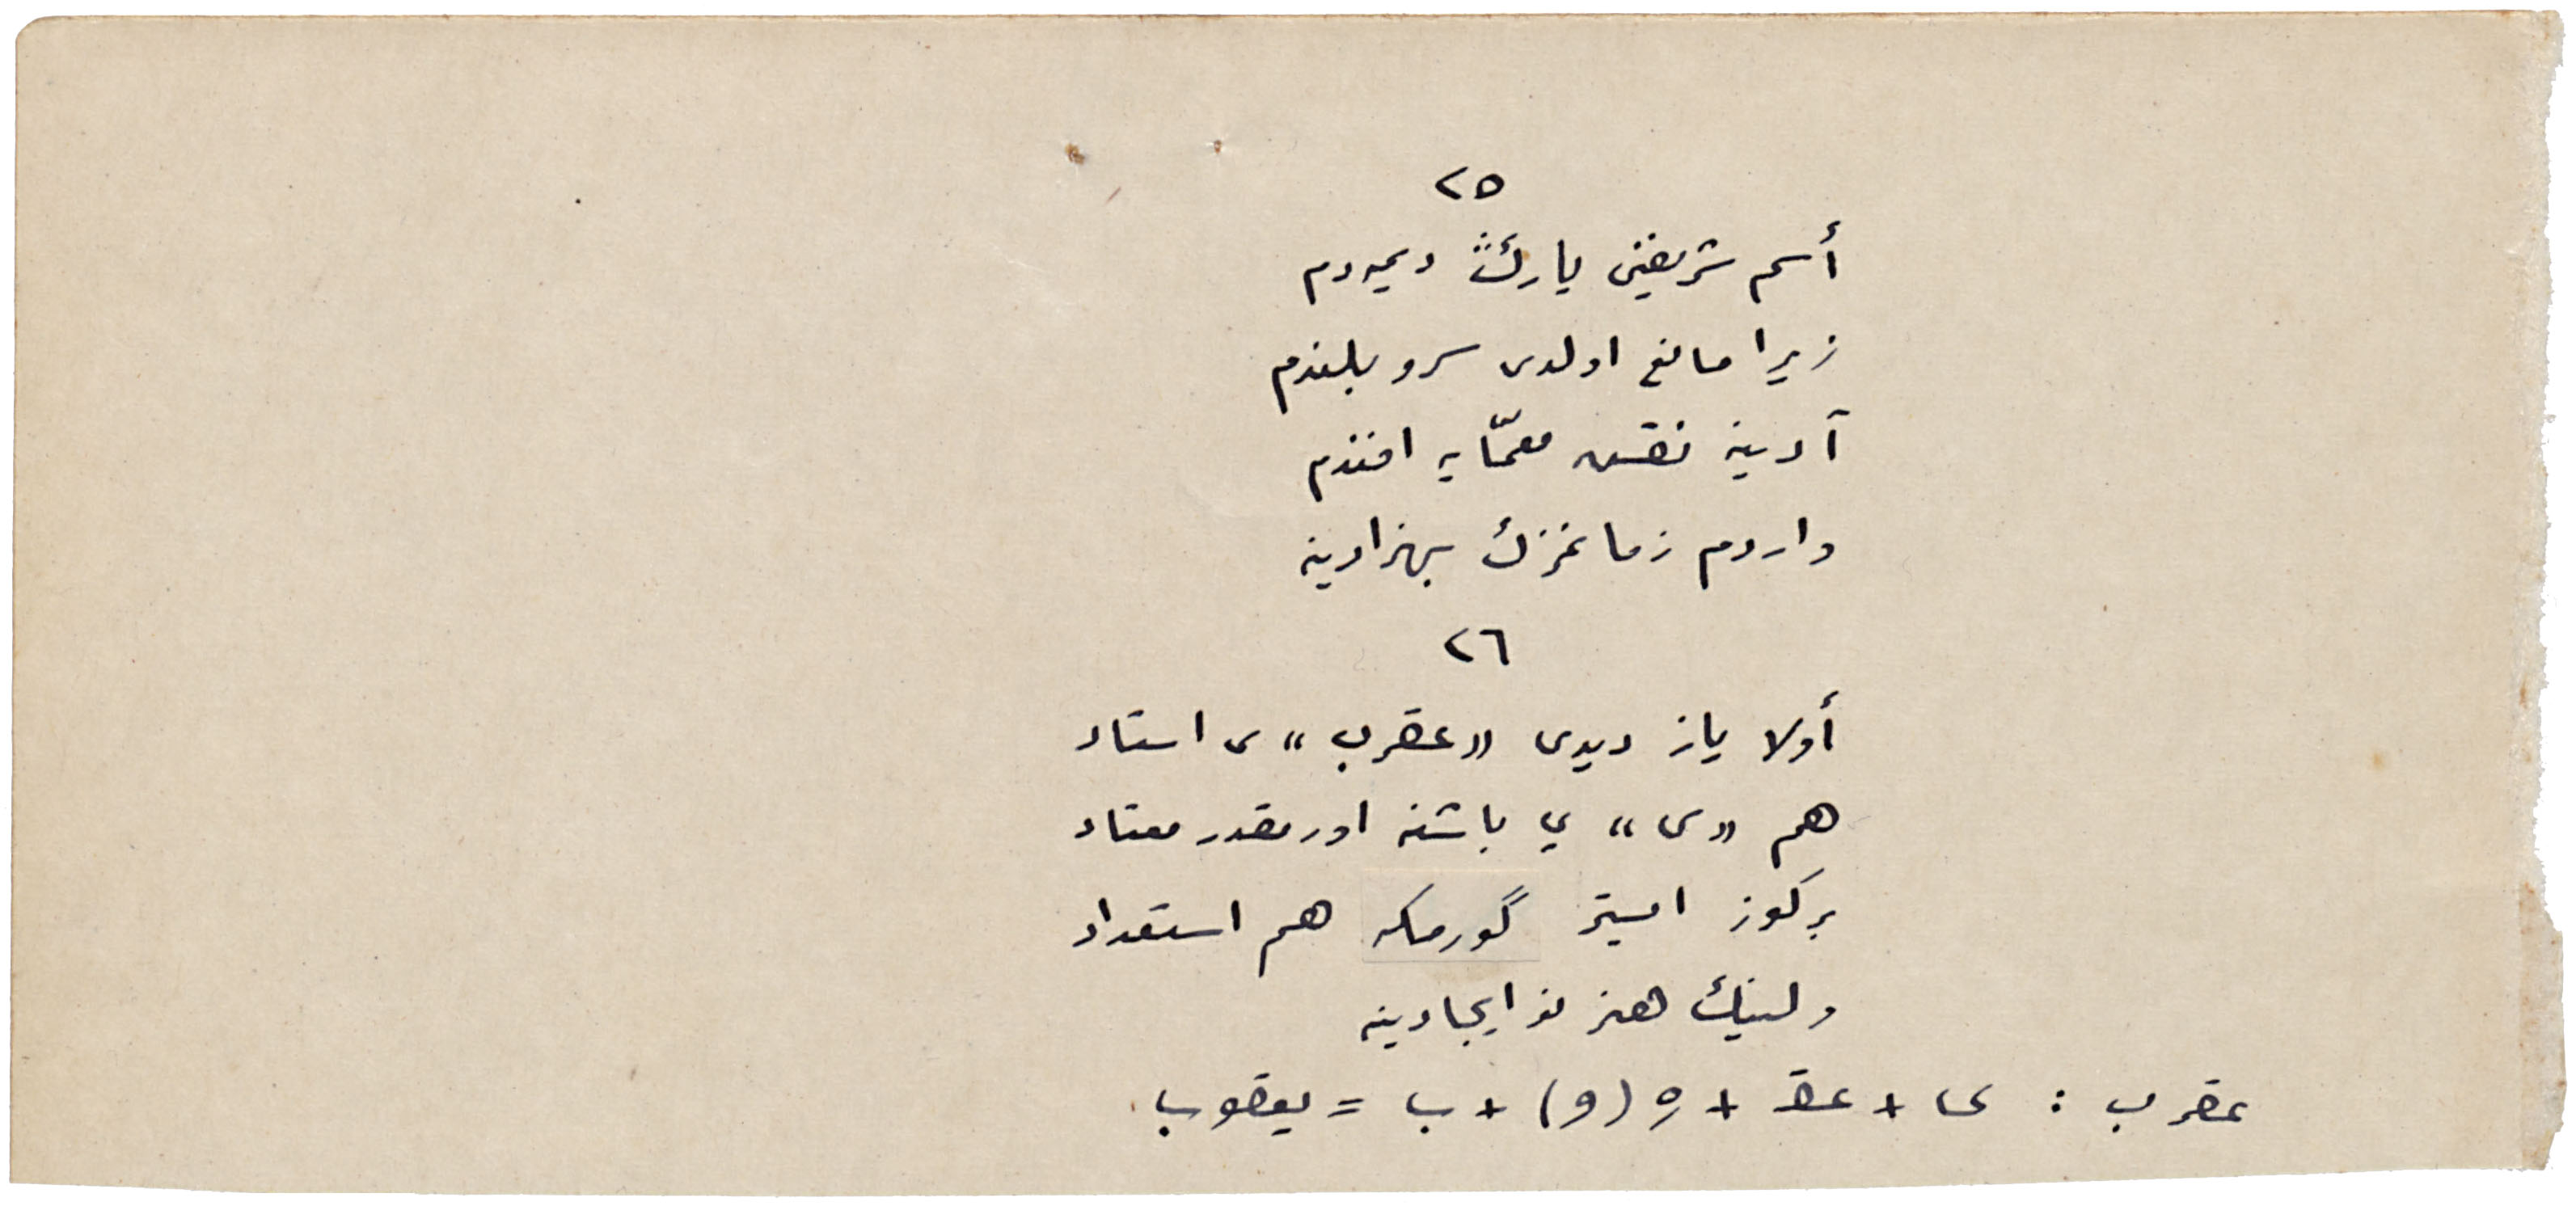 ٢٥
أسم شريفنى يارڭ ديميه‌ردم
زيرا مانع اولدى سرو بلندم
آدينه نقش معمّايه افندم
واردم زمانمزك بهزادينه
٢٦
أولا ياز ديدى «عقرب»ى استاد
هم «ى» ي باشنه اور مقدر معتاد
بر كوز ايستر گورمكه هم استعداد
ولينك هنر نو ايجادينه
عقرب : ى + عقـ + ره (و) + ب = يعقوب